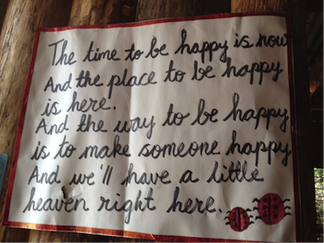 The time to be happy is now
And the place to be happy
is here.
And the way to be happy
is to make someone happy
And we'll have a little
heaven right here.